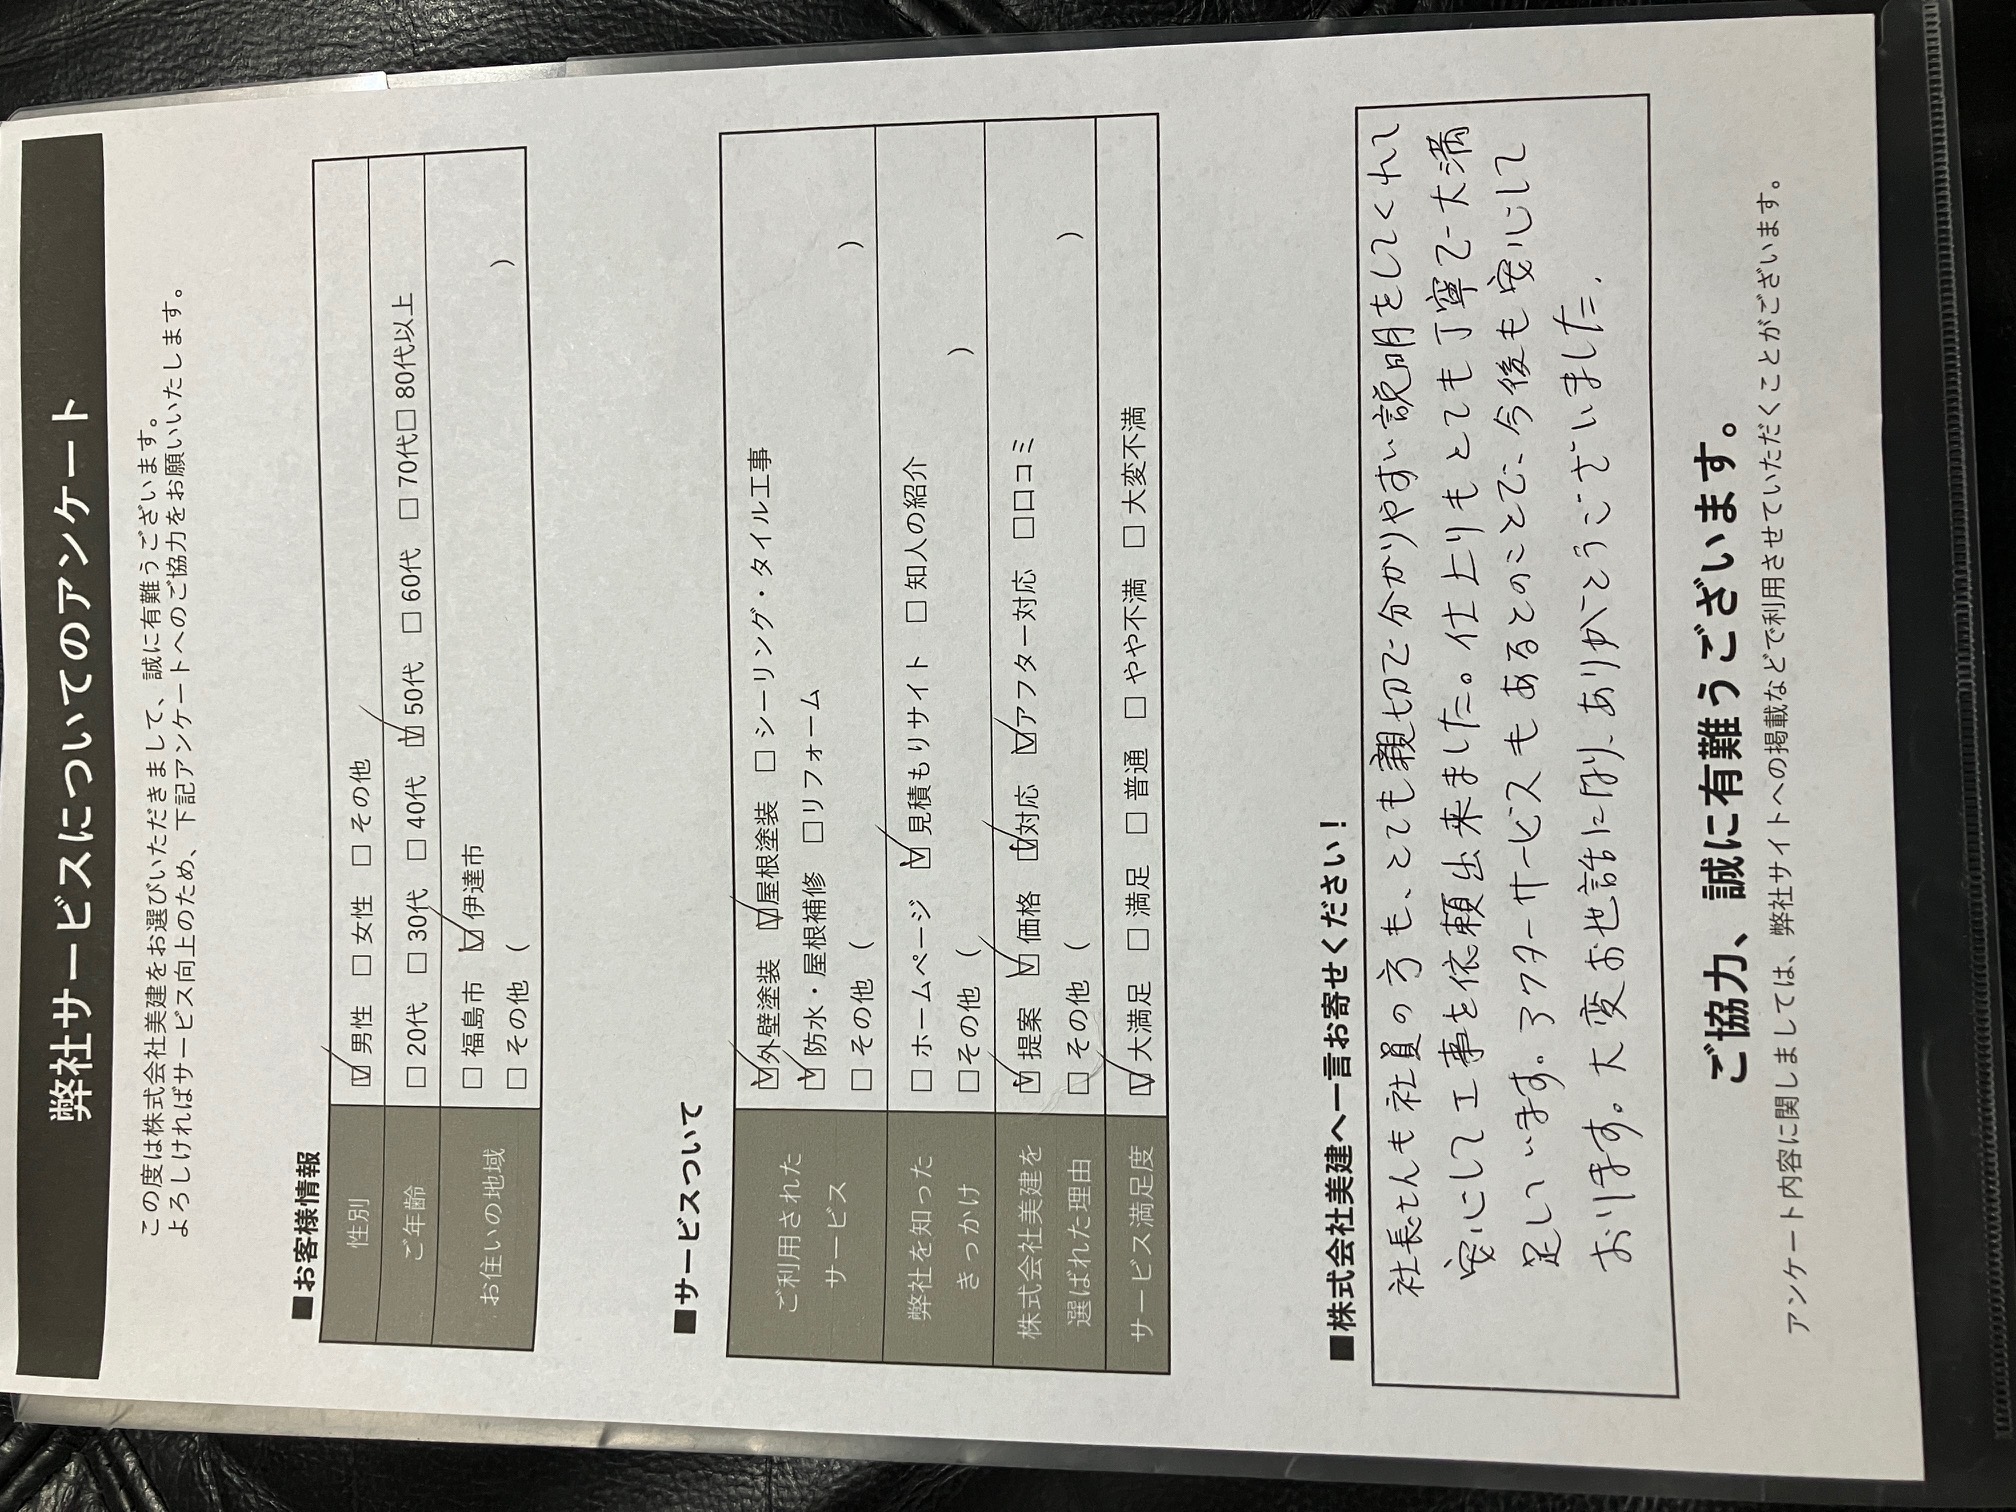 弊社サービスについてのアンケート
この度は株式会社美建をお選びいただきまして、誠に有難うございます。
よろしければサービス向上のため、下記アンケートへのご協力をお願いいたします。
■お客様情報
性別 ☑ 男性 □ 女性 □ その他
ご年齢 □ 20代 □ 30代 □ 40代 ☑ 50代 □ 60代 □ 70代 □ 80代以上
お住いの地域 □ 福島市 ☑ 伊達市
□ その他 ( )
■サービスついて
ご利用された ☑ 外壁塗装 ☑ 屋根塗装 □ シーリング・タイル工事
サービス ☑ 防水・屋根補修 □ リフォーム
□ その他 ( )
弊社を知った □ ホームページ ☑ 見積もりサイト □ 知人の紹介
きっかけ □ その他 ( )
株式会社美建を ☑ 提案 ☑ 価格 ☑ 対応 ☑ アフター対応 □ 口コミ
選ばれた理由 □ その他 ( )
サービス満足度 ☑ 大満足 □ 満足 □ 普通 □ やや不満 □ 大変不満
■株式会社美建へ一言お寄せください！
社長さんも社員の方も、とても親切で分かりやすい説明をしてくれて
安心して工事を依頼出来ました。仕上りもとても丁寧で大満
足しています。アフターサービスもあるとのことで、今後も安心して
おります。大変お世話になり、ありがとうございました.
ご協力、誠に有難うございます。
アンケート内容に関しましては、弊社サイトへの掲載などで利用させていただくことがございます。